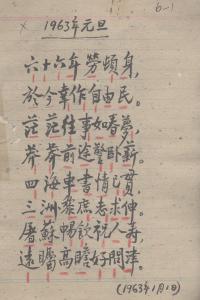 6-1
1963年元旦
六十六年勞頓身,
於今幸作自由民。
茫茫往事如春夢,
莽莽前途警臥薪。
四海車書情已貫,
三洲黎庶志求伸。
屠蘇暢飲祝人壽,
遠矚高瞻好問津。
(1963年1月1日)